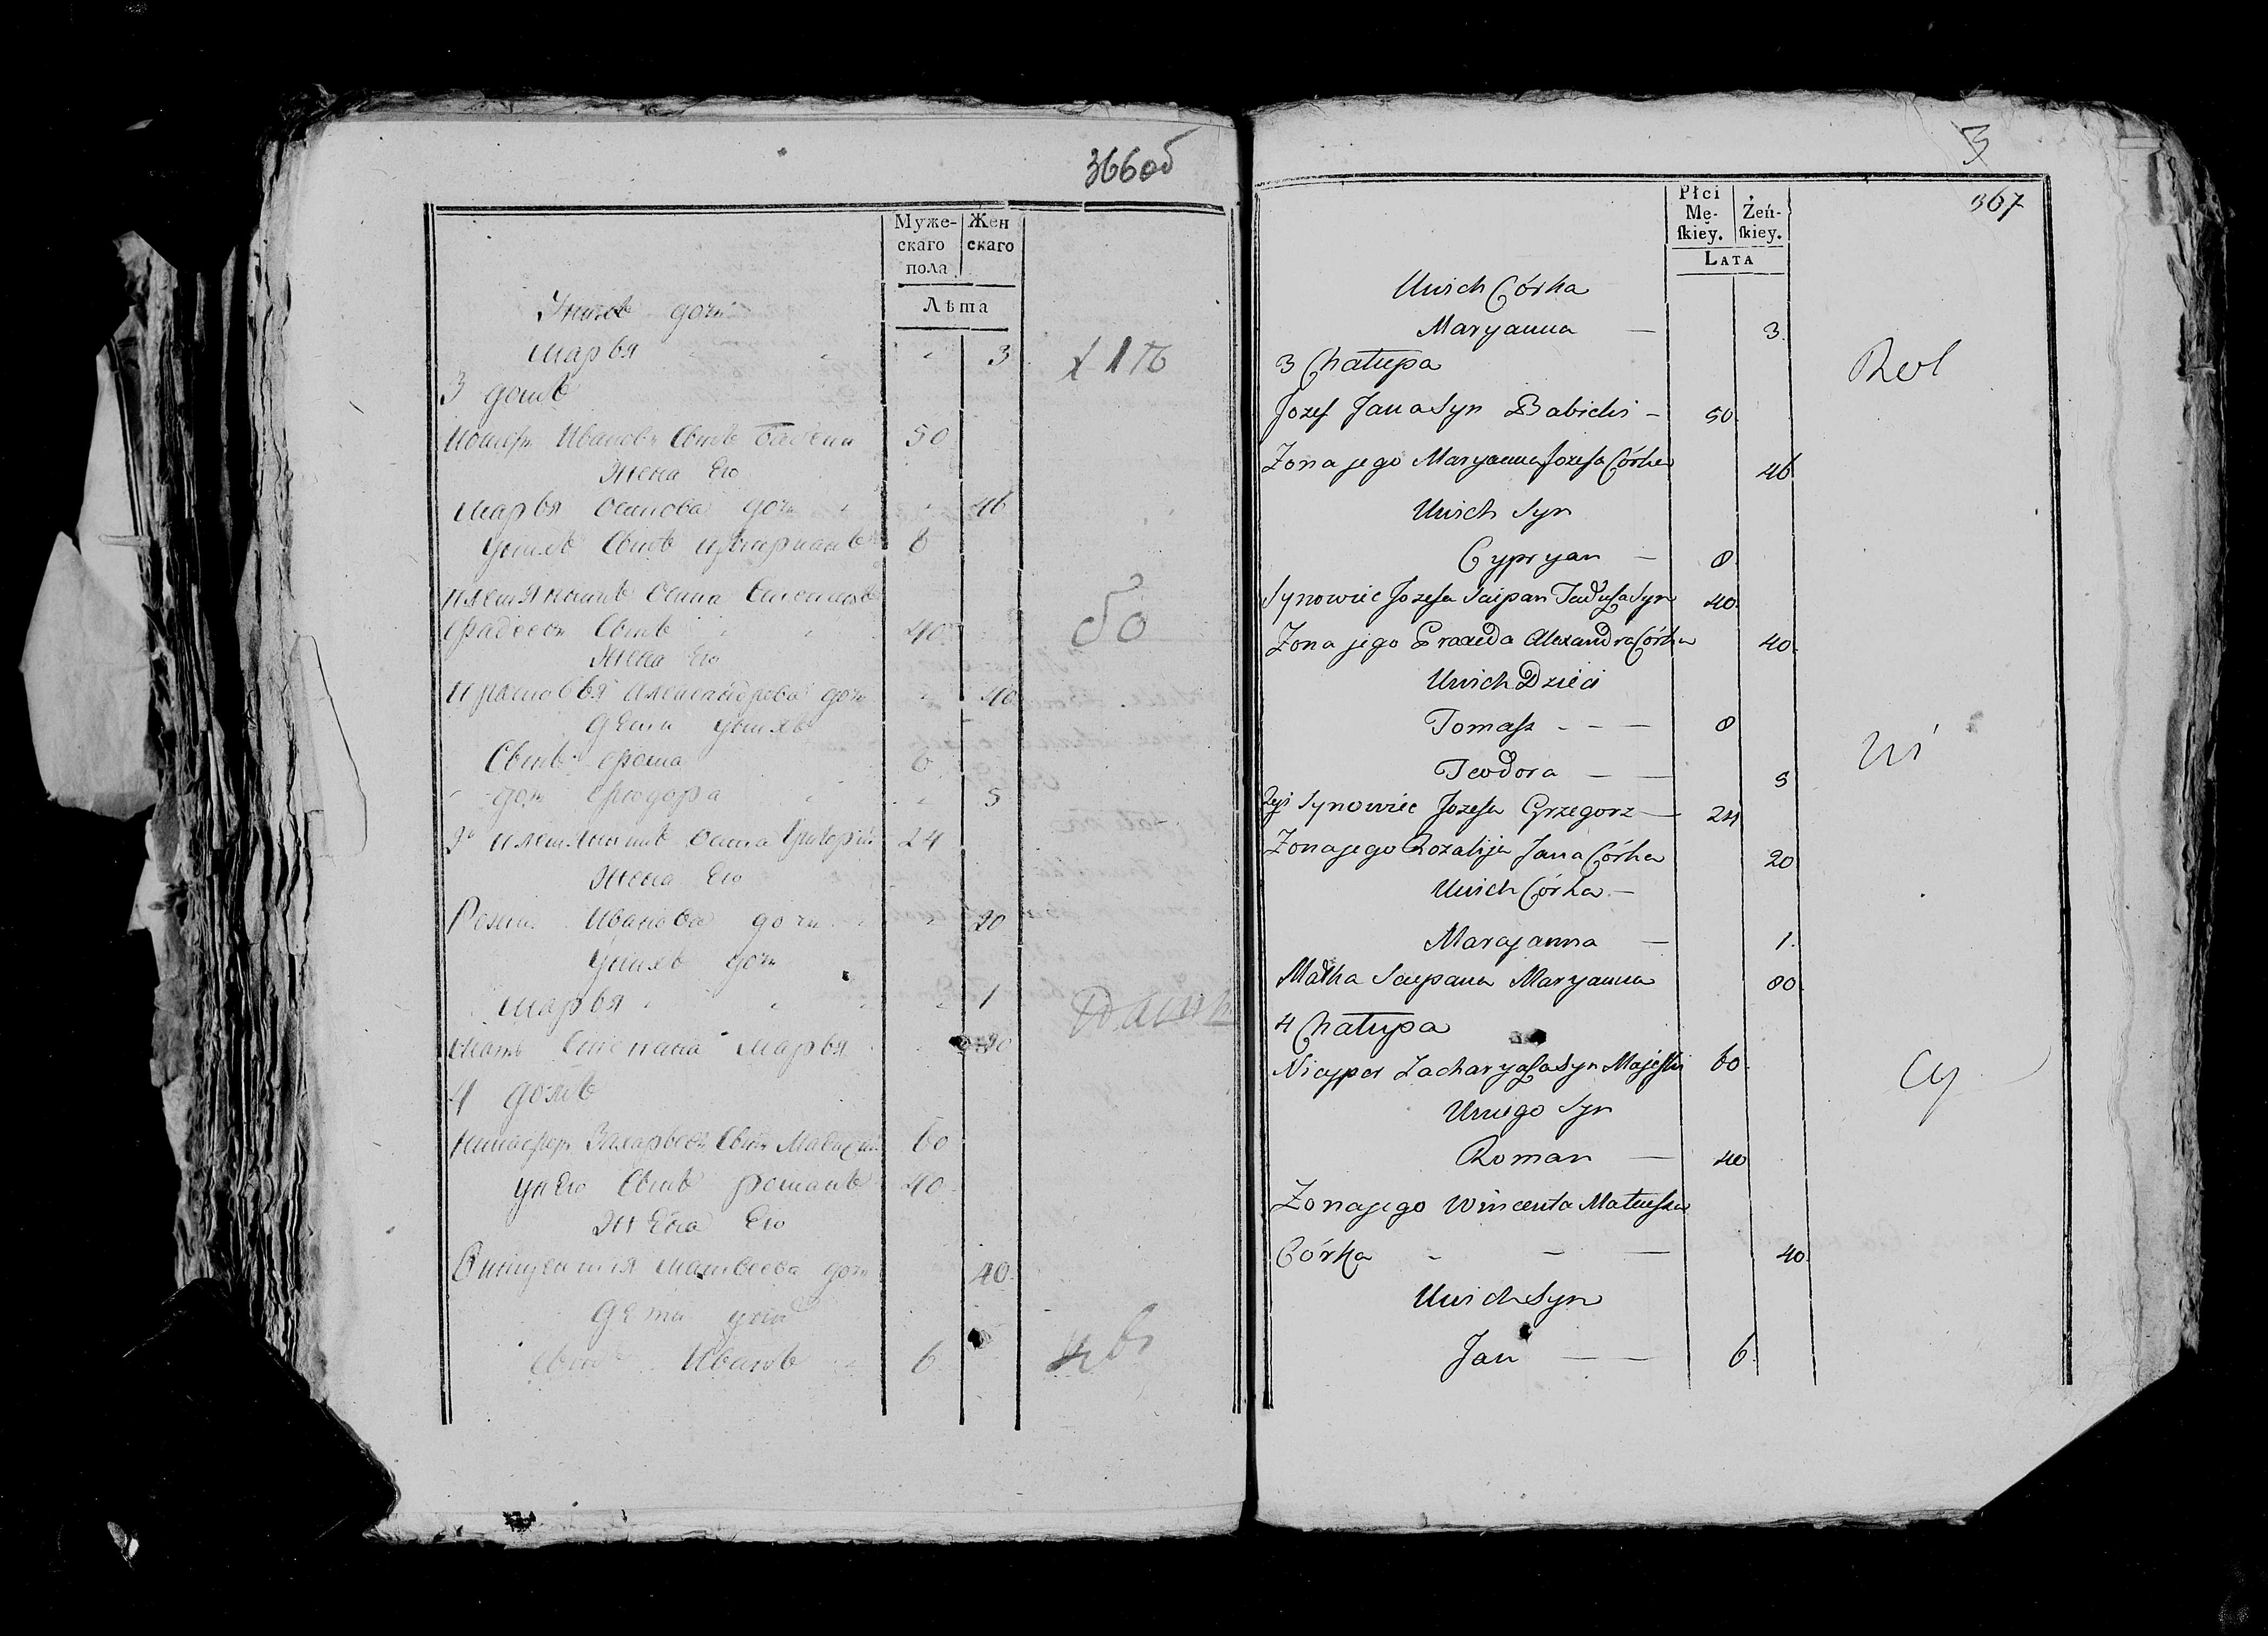 366об
Муже-
скаго
пола
Жен
скаго
Лѣта
У нихъ дочь
Марья 3
3 домъ
Иосифъ Ивановъ Сынъ 50
Жена Его
Марья Осипова дочь 46
у нихъ Сынъ Циприанъ 8
племянникъ Осипа
Фадеевъ Сынъ 40
Жена Его
Александрова дочь 40
дети у нихъ
Сынъ Фома 8
дочь Феодора 5
2й племянникъ Осипа Григорий 24
Жена Его
Иванова дочь 20
у нихъ дочь
Марья 1
Мать Степана Марья 80
4 домъ
Никифоръ Захарьевъ Сынъ 60
у нЕго Сынъ романъ 40
ЖЕна Его
Винцентия Матвеева дочь 40
дети у нихъ
Сынъ Иванъ 6
3
367
Płci
Mę-
ſkiey.
Żeń-
ſkiey.
Lata
Unich Córka
Maryanna — 3
3 Chałupa
Jozef Jana Syn Babicki — 50
Zona jego Maryanna Jozefa Córka 46
Unich Syn
Cypryan — 8
Synowiec Jozefa Sciepan Tadeuſza Syn 40
Zona jego Praxeda Alexandra Córka 40
Unich Dzieci
Tomaſz - - — 8
Teodora — — 5
2gi Synowiec Jozefa Grzegorz — 24
Zona jego Rozalija Jana Córka 20
Unich Córka —
Maryanna — 1.
Matka Sciepana Maryanna 80
4 Chałupa
Nicypor Zacharyaſza Syn 60
Uniego Syn
Roman — 40
Zona jego Wincenta Mateuſza
Córka - — — 40
Unich Syn
Jan — — 6